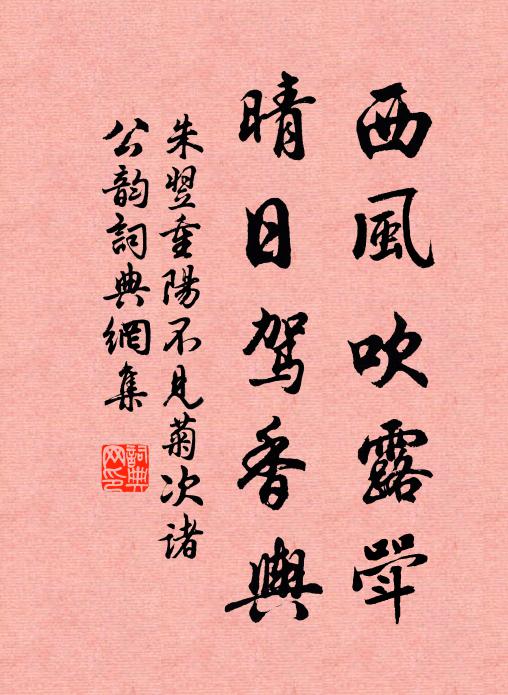 西風吹露斝
晴日駕香輿
朱翌重陽不見菊次諸
公韵詞典網集
詞典网印